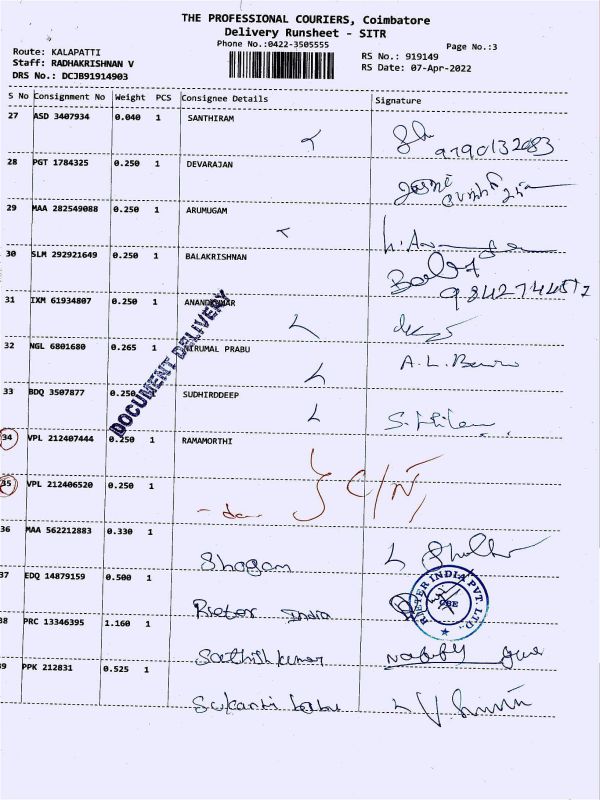 THE PROFESSIONAL COURIERS, Coimbatore
Delivery Runsheet - SITR
Phone No.:0422-3505555
Page No.:3
Route: KALAPATTI
Staff: RADHAKRISHNAN V
DRS No.: DCJB91914903
RS No.: 919149
RS Date: 07-Apr-2022
S No Consignment No Weight PCS Consignee Details Signature
27 ASD 3407934 0.040 1 SANTHIRAM
9790132083
28 PGT 1784325 0.250 1 DEVARAJAN
29 MAA 282549088 0.250 1 ARUMUGAM
30 SLM 292921649 0.250 1 BALAKRISHNAN
31 IXM 61934807 0.250 1
32 NGL 6801680 0.265 1 NIRUMAL PRABU
33 BDQ 3507877 0.250 1 SUDHIRDDEEP
DOCUMENT DELIVERY
34 VPL 212407444 0.250 1 RAMAMORTHI
35 VPL 212406520 0.250 1 - do - C/N
36 MAA 562212883 0.330 1 Shogan
37 EDQ 14879159 0.500 1 Rieter India
RIETER INDIA PVT. LTD.,
CBE
38 PRC 13346395 1.160 1 Sathish kumar
39 PPK 212831 0.525 1